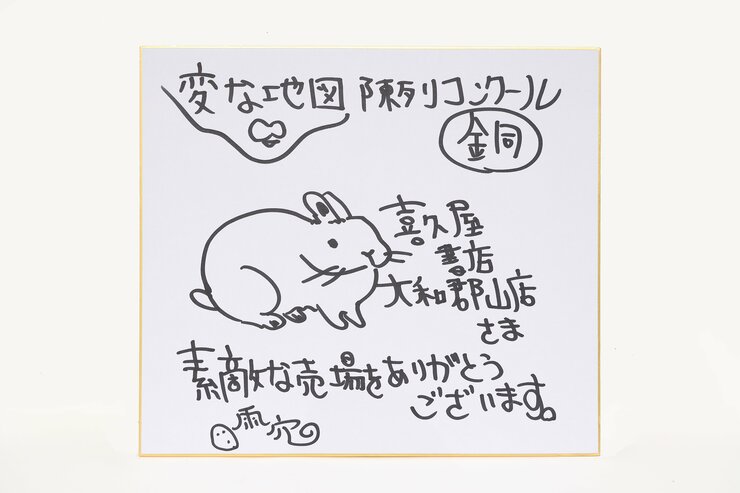 変な地図 陳列コンクール
銅
喜久屋
書店
大和郡山店
さま
素敵な売場をありがとう
ございます。
雨穴